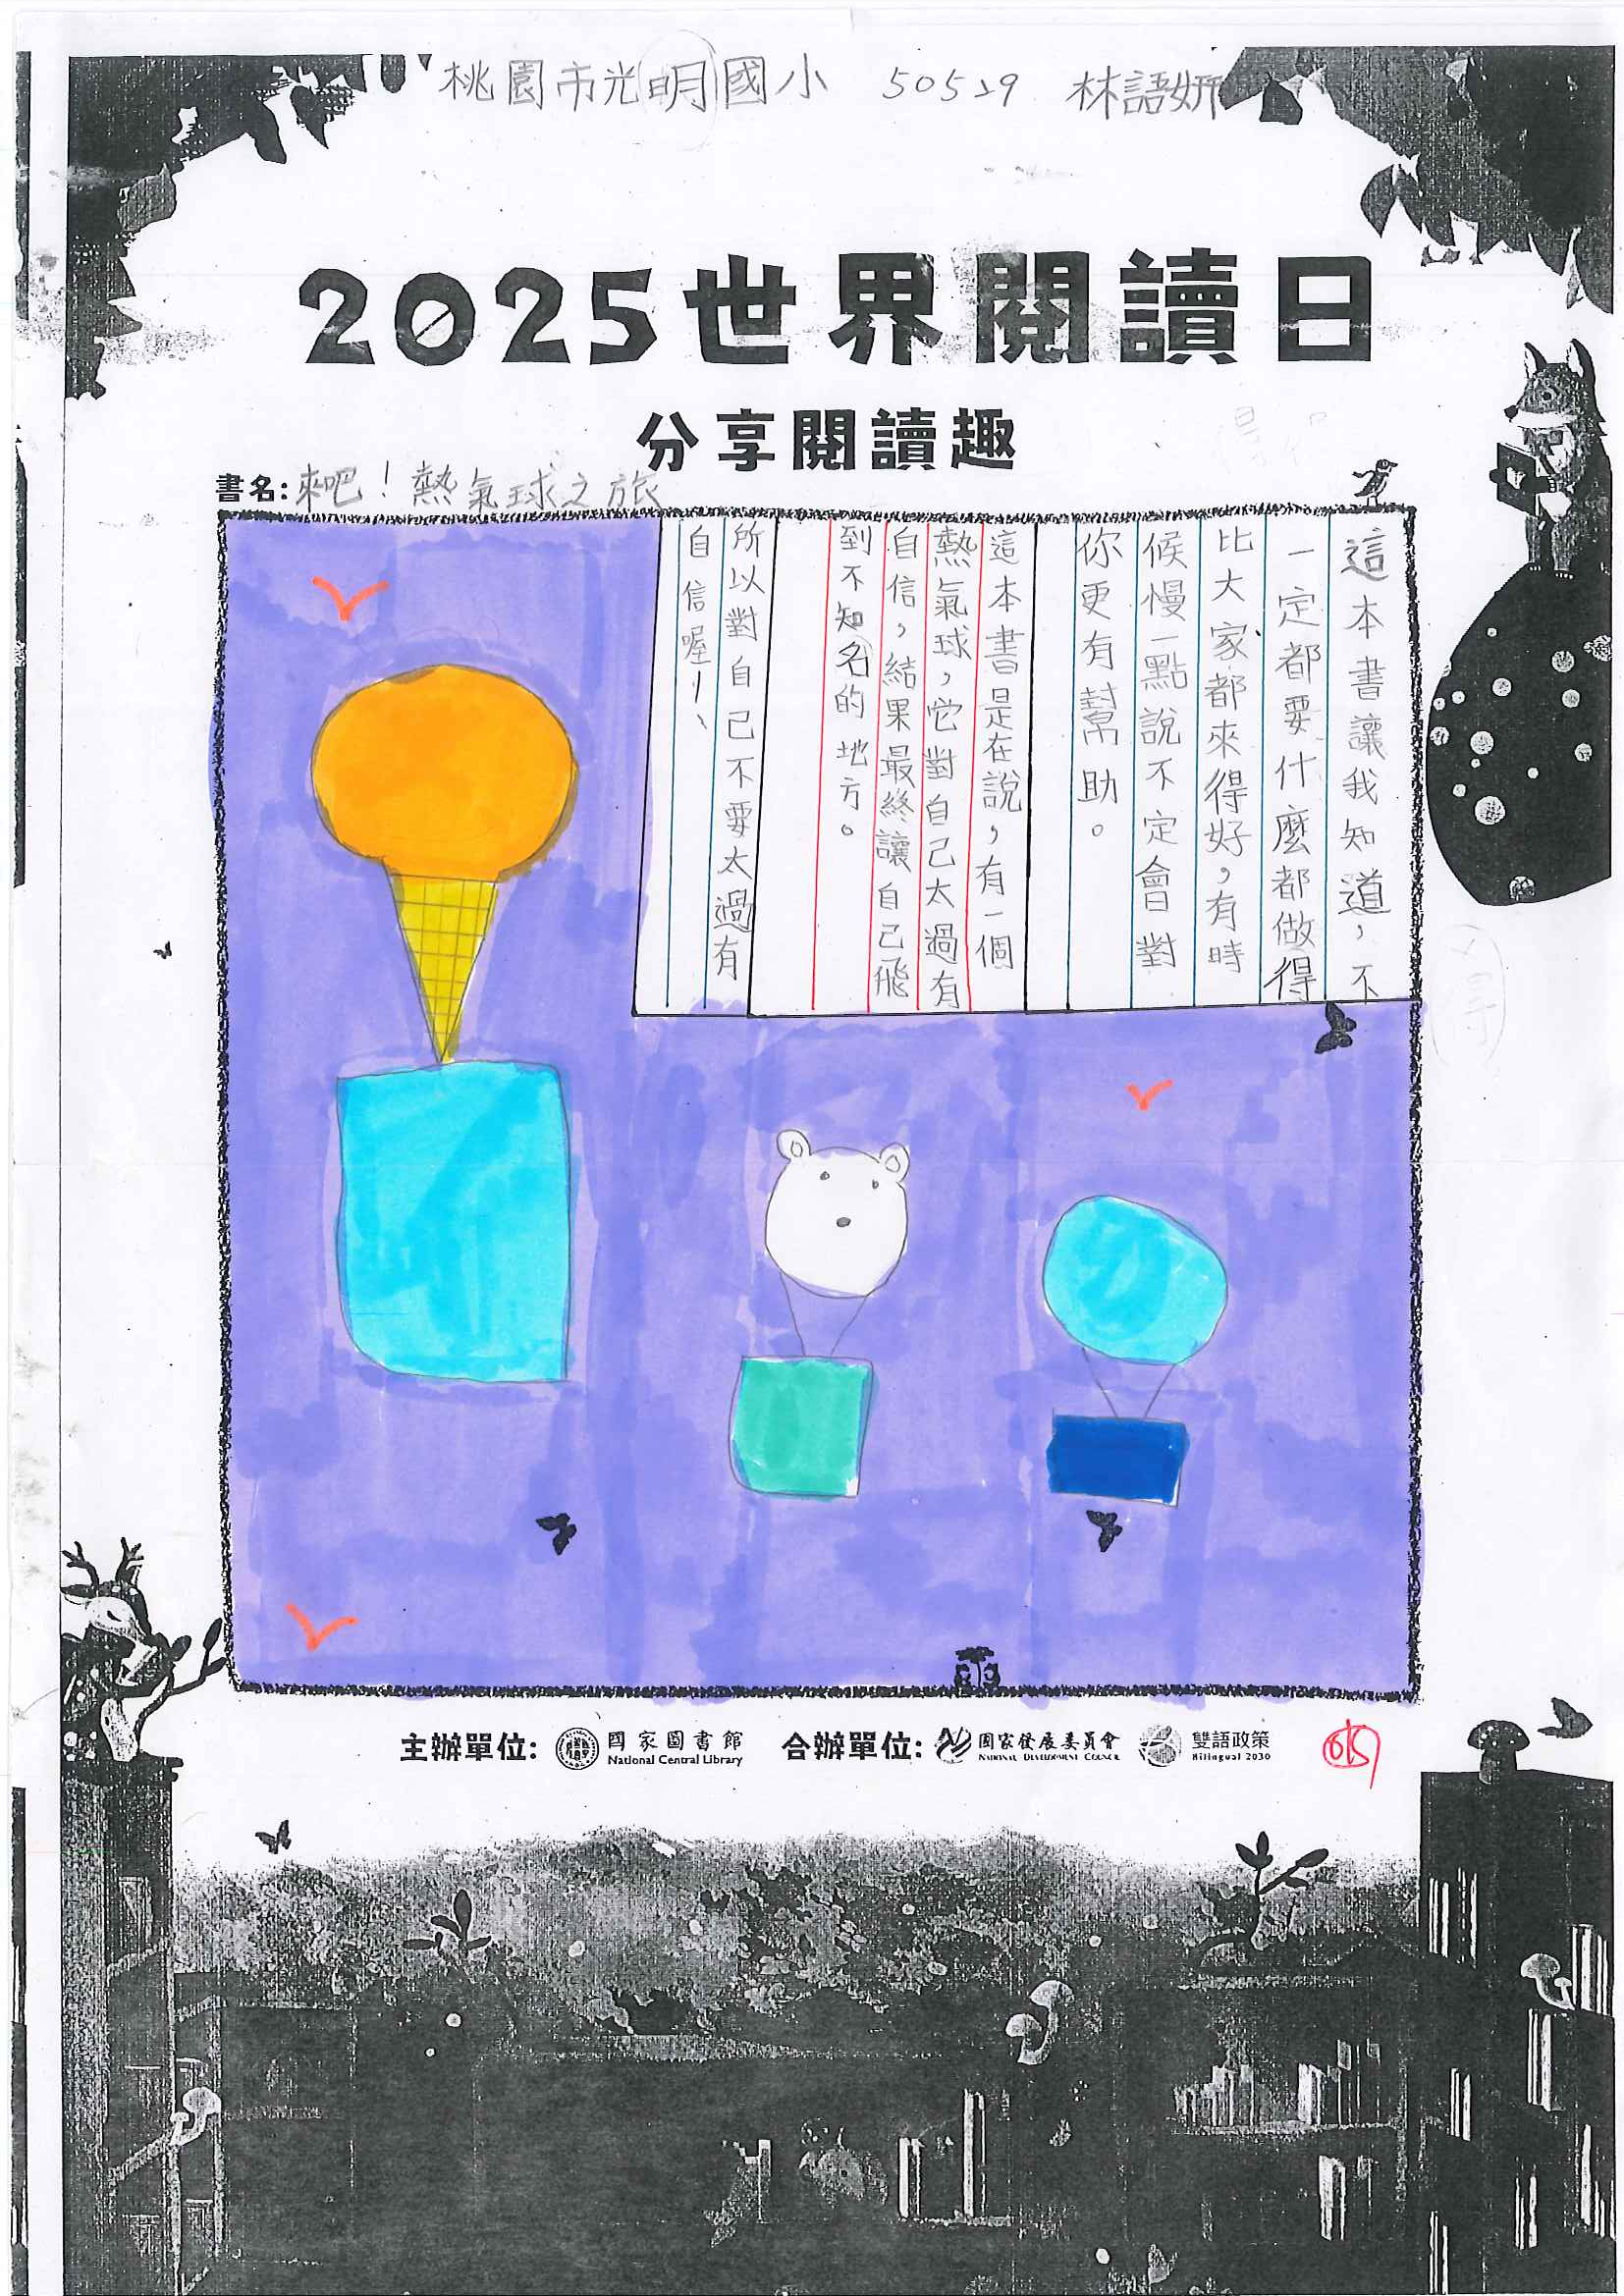 桃園市光明國小 50529 林語妍
2025世界閱讀日
分享閱讀趣
書名:來吧!熱氣球之旅
這本書讓我知道,不
一定都要什麼都做得
比大家都來得好,有時
候慢一點說不定會對
你更有幫助。
這本書是在說,有一個
熱氣球,它對自己太過有
自信,結果最終讓自己飛
到不知名的地方。
所以對自己不要太過有
自信喔!
主辦單位: 國家圖書館 National Central Library 合辦單位: 國家發展委員會 National Development Council 雙語政策 Bilingual 2030